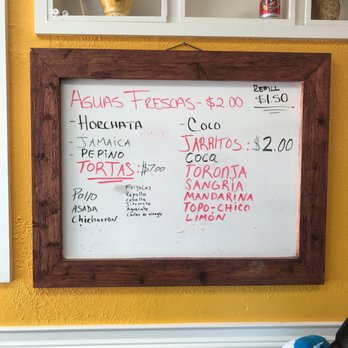 AGUAS FRESCAS - $2.00
REFILL
$1.50
- HORCHATA
- JAMAICA
- PEPINO
- COCO
TORTAS: $7.00
Pollo
ASADA
Chicharron
Frijoles
Repollo
Cebolla
Aguacate
JARRITOS: $2.00
COCA
TORONJA
SANGRIA
MANDARINA
TOPO-CHICO
LIMÓN